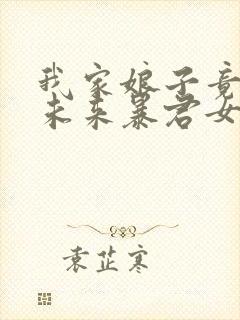 我家娘子竟
未来暴君女
袁芷寒